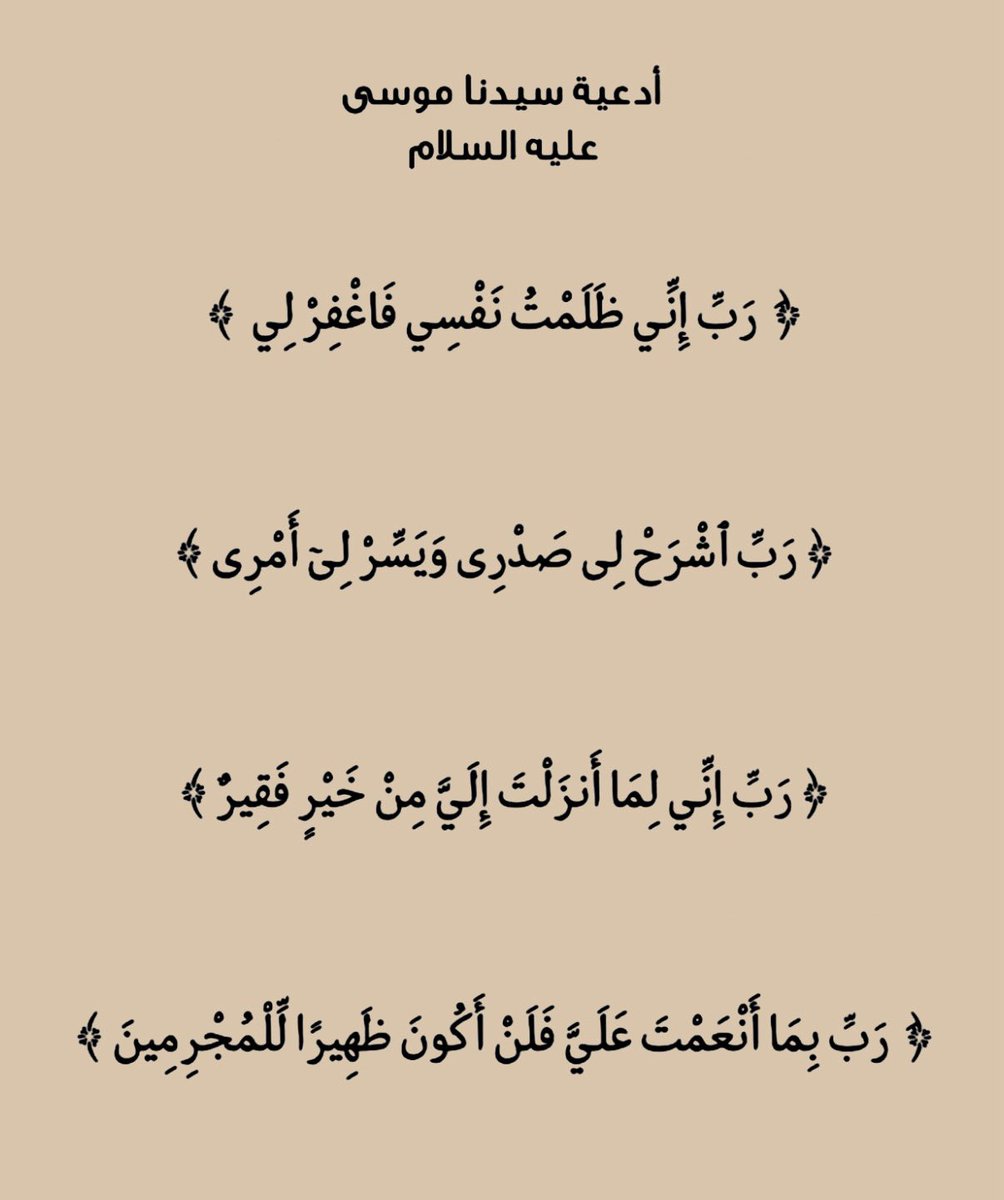 أدعية سيدنا موسى
عليه السلام
﴿ رَبِّ إِنِّي ظَلَمْتُ نَفْسِي فَاغْفِرْ لِي ﴾
﴿ رَبِّ ٱشْرَحْ لِى صَدْرِى وَيَسِّرْ لِىٓ أَمْرِى ﴾
﴿ رَبِّ إِنِّي لِمَا أَنزَلْتَ إِلَيَّ مِنْ خَيْرٍ فَقِيرٌ ﴾
﴿ رَبِّ بِمَا أَنْعَمْتَ عَلَيَّ فَلَنْ أَكُونَ ظَهِيرًا لِّلْمُجْرِمِينَ ﴾